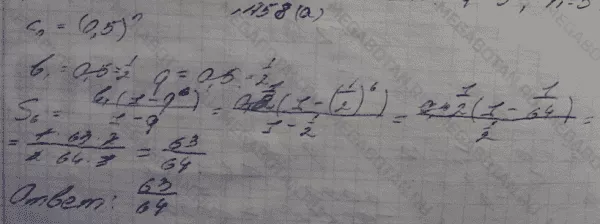 № 458(а)
cₙ = (0,5)ⁿ
b₁ = 0,5 = 1/2   q = 0,5 = 1/2
S₆ = b₁(1-q⁶)/1-q = 1/2(1-(1/2)⁶)/1-1/2 = 1/2(1-1/64)/1/2 =
= 1·63·2/2·64·1 = 63/64
Ответ: 63/64